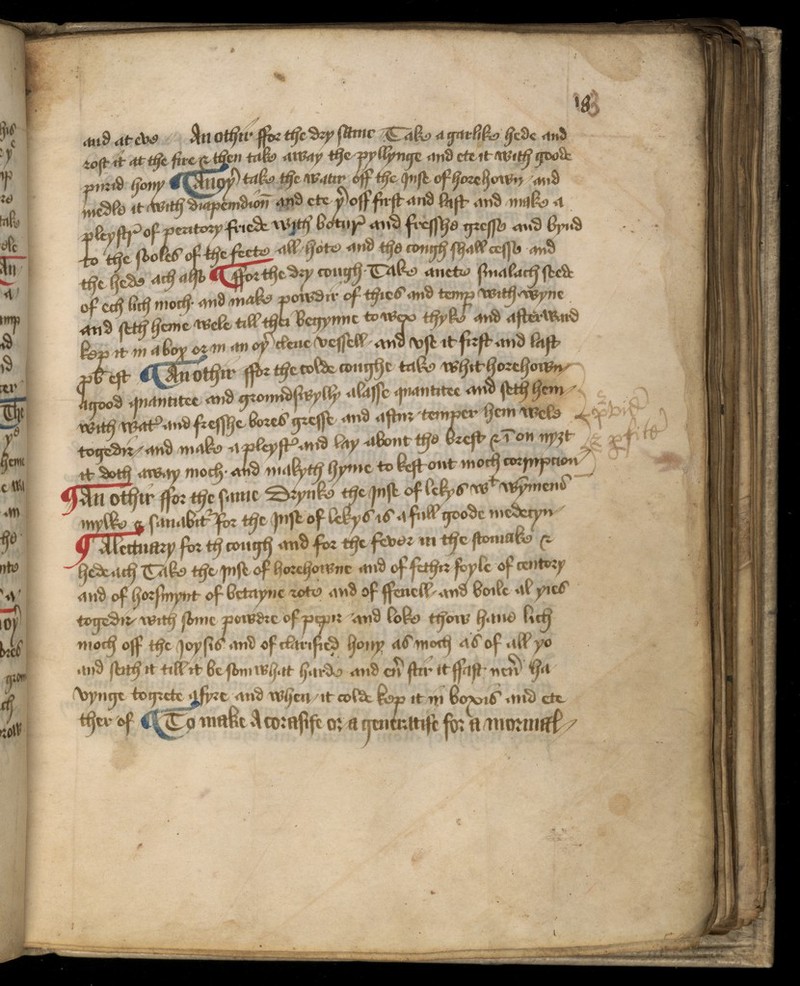 18
and at eve An othir ffor the dry same Take a garlike hede and
rost it at the fire & then take away the pyllynge and ete it with goode
purid hony ¶ Anoyr take the watir off the Juse of horehown and
medle it with diapendion and ete yr off first and last and make a
pleystr of peritory friede with botur and fresshe gresse and bynd
to the sooles of the feete all hote and the cough shall cesse and
the hede ach also ¶ ffor the dry cough Take anete smalach seede
of ech lich moch and make powdir of thies and temp with wyne
and seth heme wele till thei begynne to wex thyke and afterward
kep it in a box or in an oyr clene vessell and vse it first and last
pb est ¶ An othir ffor the colde coughe take whit horehown
a good quantitee and growndswylly a lasse quantitee and seth hem
with watr and fresshe bores gresse and aftur temper hem wele
togedir and make a pleystr and lay about the brest & in on nyzt
it doth away moch and makyth hyme to kest out moch corrupcion
¶ An othir ffor the same Drynke the Juse of lekys wt wymens
mylke & sanabitr for the Juse of lekys is a full goode medecyn
¶ A lectuary for th cough and for the fever in the stomake &
hede ach Take the Juse of horehowne and of fethir foyle of centory
and of horsmynt of betayne rote and of ffenell and boile al yies
togedir with some powdre of pepir and loke thow have lich
moch off the Joysis and of clarified hony as moch as of all yo
and seth it till it be somwhat harde and en stir it ffast nen ha
vynge to grete a fyre and when it colde kep it in boxis and ete
ther of ¶ To make A corasife or a generatife for a mormal